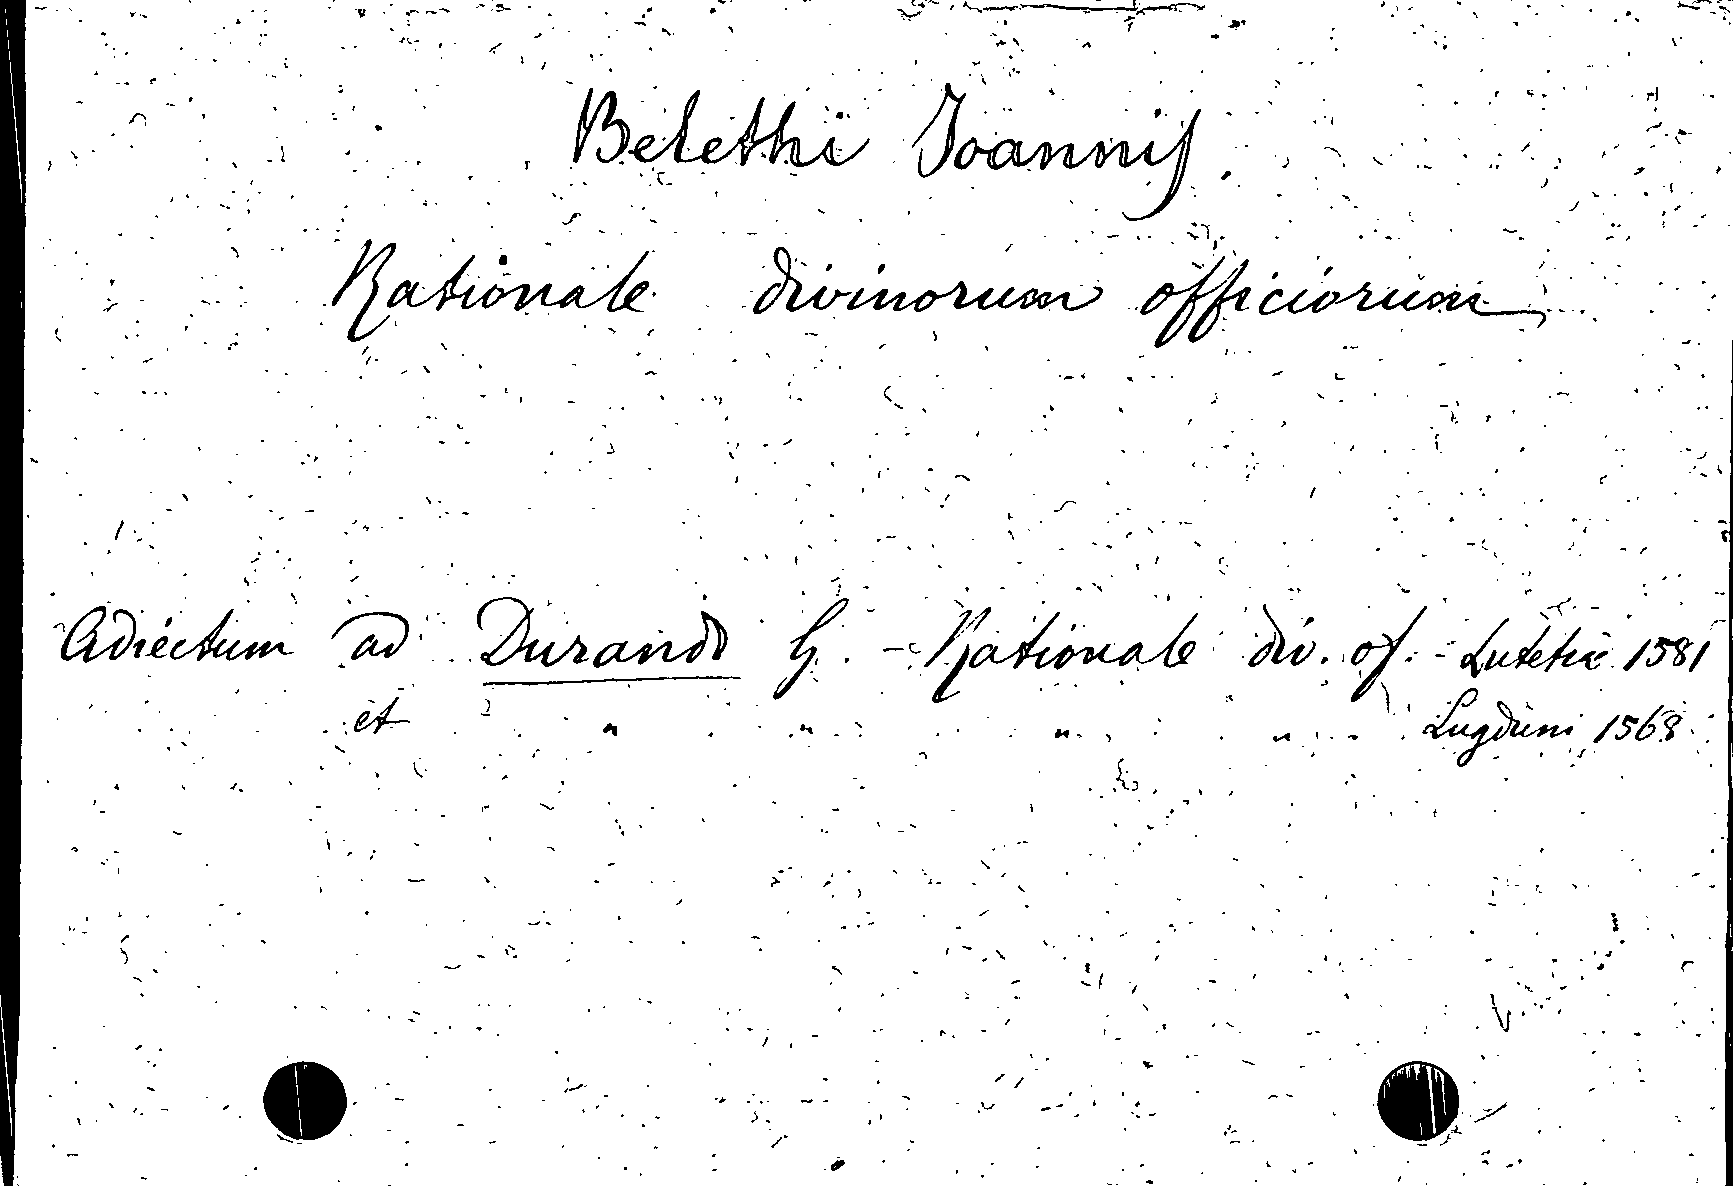 Belethi Joannis.
Rationale divinorum officiorum
Adiectum ad Durand G. - Rationale div. of. - Lutetiæ 1581
et " " " " Lugduni 1568